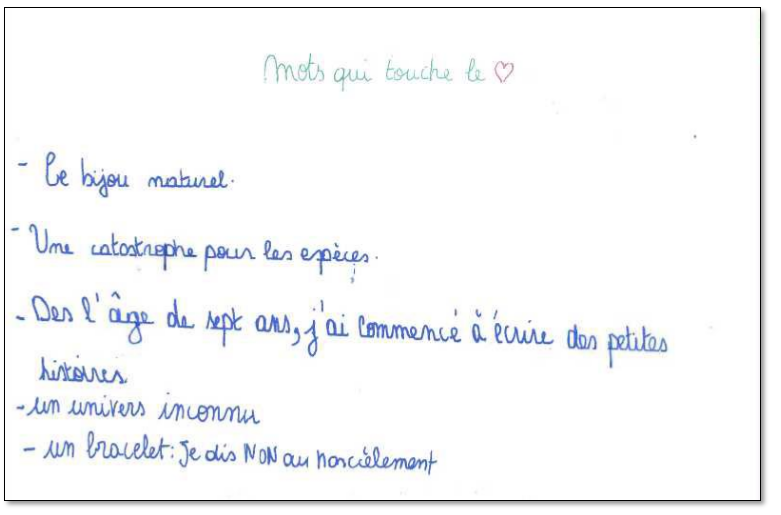 Mots qui touche le ♡
- Ce bijou naturel.
- Une catastrophe pour les espèçes.
- Des l'âge de sept ans, j'ai commencé à écrire des petites
histoires
- un univers inconnu
- un bracelet: Je dis NON au harcèlement